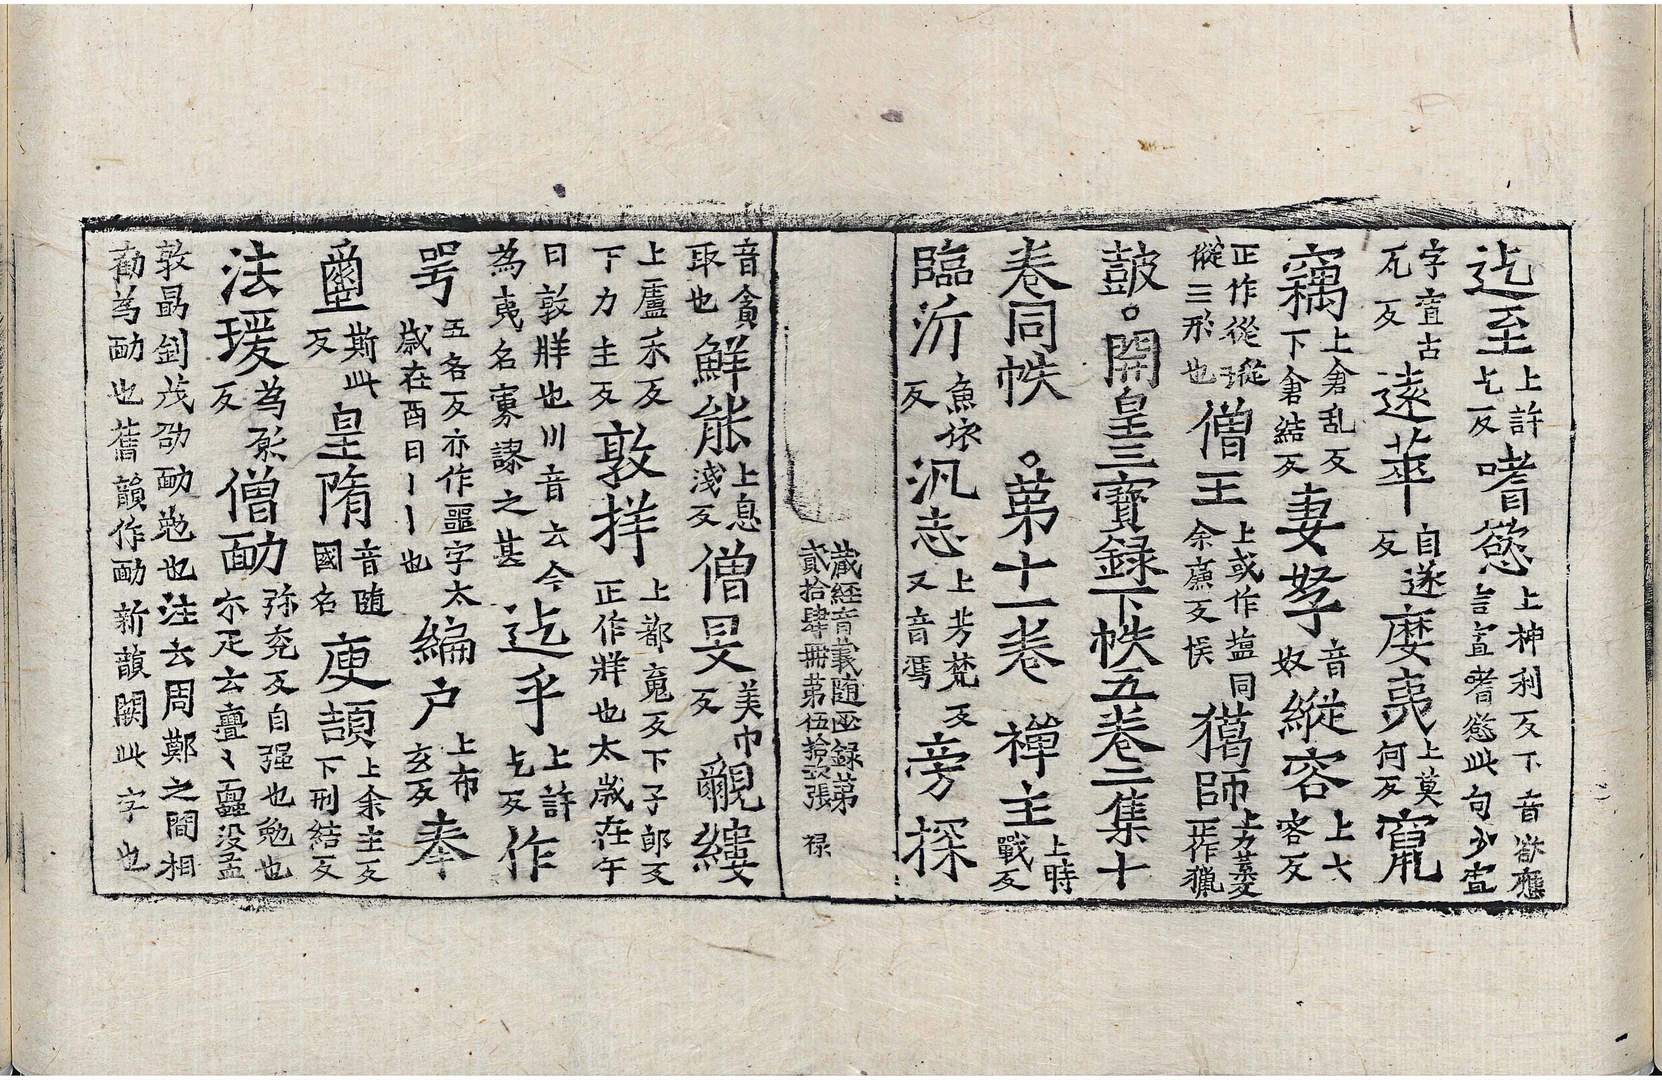 迄至上許乞反嗜慾上神利反下音欲應言宜嗜慾此句少宜
字宜古瓦反遠華自遂反麼夷上莫何反竄
竊上倉乱反下倉結反妻孥音奴縱容上七容反
正作從䡮縱三形也僧王上或作蘊同余廉反悮獦師上方葽反作獵
鼓。開皇三寶録下帙五卷二集十
卷同帙。第十一卷 禪主上時戰反
臨沂魚依反汎志上芳梵反又音馮旁探
藏經音義随函録第貳拾肆冊第伍拾張 禄
音貪取也鮮能上息淺反僧旻美巾反覼縷
上盧禾反下力主反敦牂上都䰟反下子郎反正作牂也太歲在午
曰敦牂也川音云今為夷名寡謬之甚迄乎上許乞反作
咢五各反亦作噩字太歲在酉曰丨丨也編户上布玄反奉
璽斯此反皇隋音随國名庾頡上余主反下刑結反
法瑗為𠫤反僧勔弥兖反自强也勉也亦疋云亹〻䘉没孟
敦勗釗茂劭勔勉也注云周鄭之間相
勸為勔也舊韻作勔新韻闕此字也